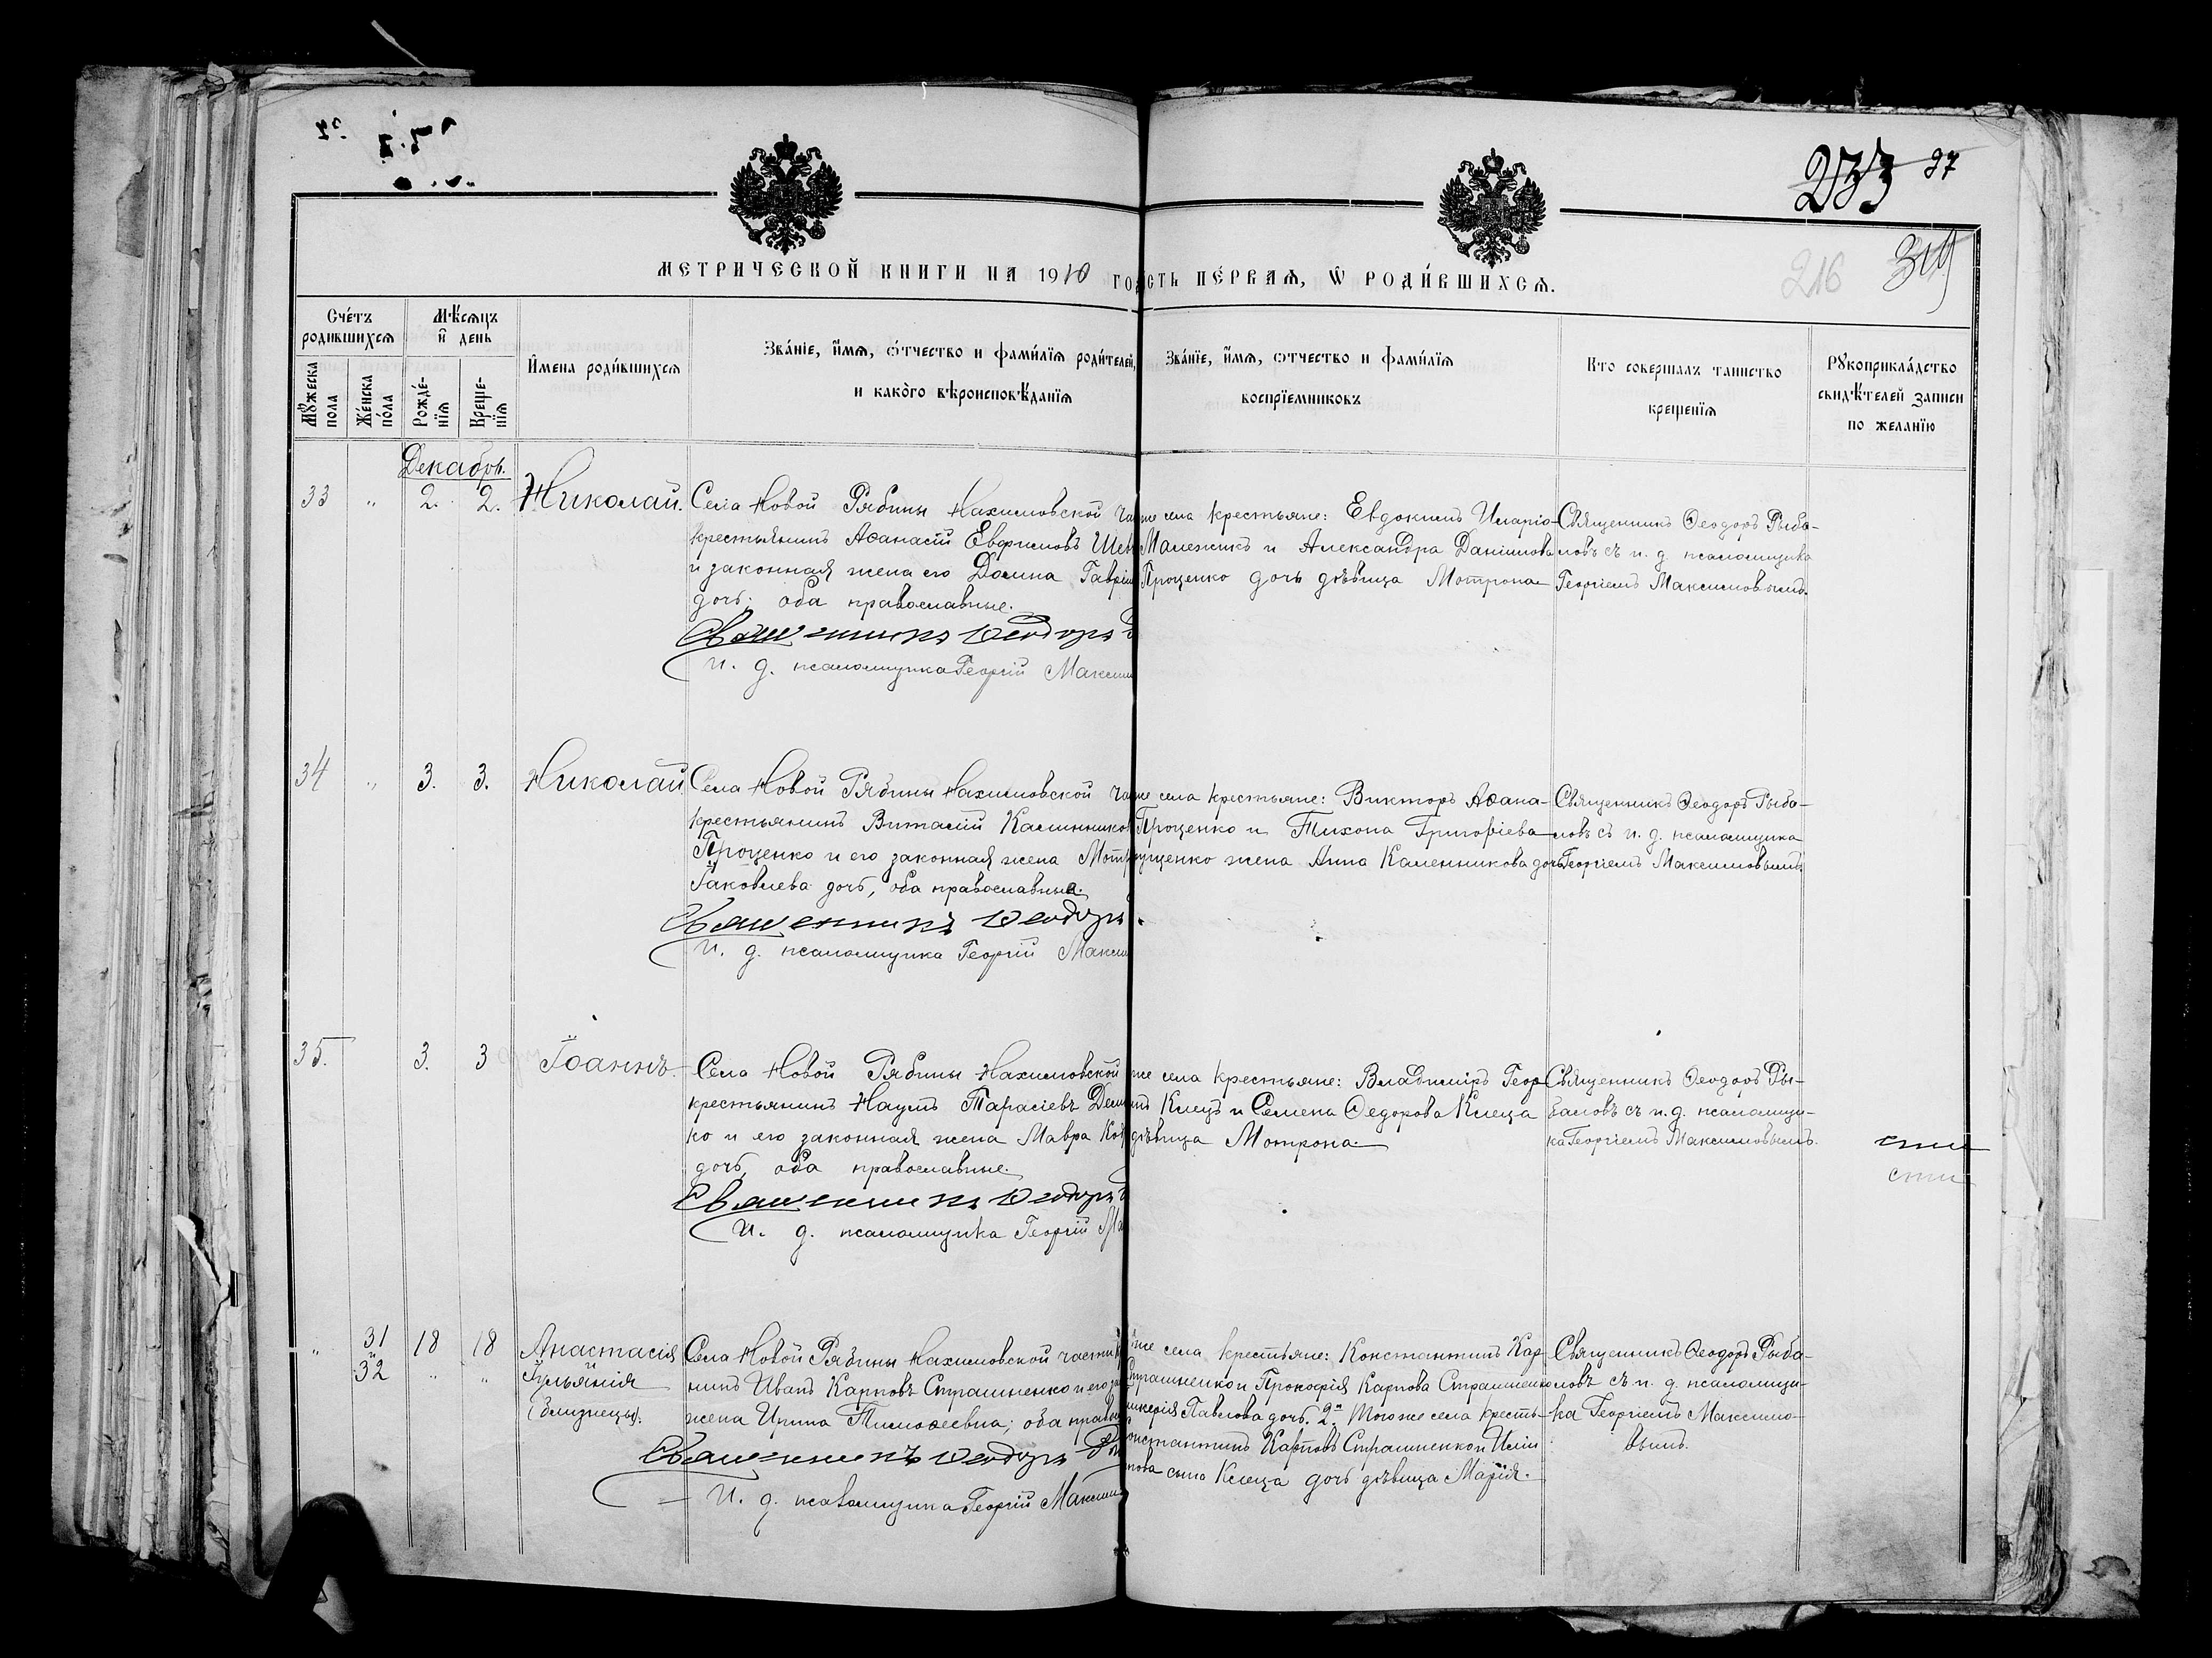 233 37
216 319
МЕТРИЧЕСКОЙ КНИГИ НА 1910 ГО
СТЬ ПЕ́РВАѦ, Ѡ РОДИ́ВШИХСѦ.
Сче́тъ родившихсѧ
Мѣ́сѧцъ и҆ день
Мꙋ́жеска пола
Же́нска по́ла
Рожде́-нїѧ
Креще-нїѧ
И҆мена роди́вшихсѧ
Зва́нїе, и҆́мѧ, ѻ҆́тчество и фами́лїѧ роди́телей,
и како́го вѣроисповѣ́данїѧ
Зва́нїе, и҆́мѧ, ѻтчество и фами́лїѧ
воспрїемниковъ
Кто совершалъ таинство
крещенїѧ
Рꙋкоприкла́дство
свидѣ́телей записи
по желанїю
Декабрь.
33 " 2. 2. Николай.
Села Новой Рябины Нахимовской ча
крестьянинъ Аѳанасій Евфимовъ Шев
и законная жена его Домна Гавріи
дочь; оба православные.
Священникъ Ѳеодоръ
И. д. псаломщика Георгій Максим
же села крестьяне: Евдокимъ Иларіо-
Малежикъ и Александра Даніилова
Проценко дочь дѣвица Мотрона
Священникъ Ѳеодоръ Рыба-
ловъ съ и. д. псаломщика
Георгіемъ Максимовымъ.
34 " 3. 3. Николай
Села Новой Рябины Нахимовской ча
крестьянинъ Виталій Калинников
Проценко и его законная жена Мотр
Іаковлева дочь, оба православные.
Священникъ Ѳеодоръ
И. д. псаломщика Георгій Макси
же села крестьяне: Викторъ Аѳана-
Проценко и Тихона Григоріева
ущенко жена Анна Каленникова дочь
Священникъ Ѳеодоръ Рыба-
ловъ съ и. д. псаломщика
Георгіемъ Максимовымъ.
35. 3. 3 Іоаннъ.
Села Новой Рябины Нахимовской
крестьянинъ Наумъ Тарасіевъ Дем
ко и его законная жена Мавра
дочь, оба православные.
Священникъ Ѳеодоръ
И. д. псаломщика Георгій Ма
же села крестьяне: Владиміръ Геор
Клецъ и Семена Ѳедорова Клеца
дѣвица Мотрона.
Священникъ Ѳеодоръ Ры-
баловъ съ и. д. псаломщи-
ка Георгіемъ Максимовымъ.
" 31 и 32 18 18 Анастасія
и
Іульянія
(близнецы).
Села Новой Рябины Нахимовской части
нинъ Иванъ Карповъ Страшненко и его за
жена Ирина Тимоѳеевна; оба право
Священникъ Ѳеодоръ
И. д. псаломщика Георгій Максим
же села крестьяне: Константинъ Кар-
Страшненко и Прокофія Карпова Страшненко
керія Павлова дочь. 2я Того же села кресть-
онстантинъ Карповъ Страшненко и Иліи
нова сына Клеца дочь дѣвица Марія.
Священникъ Ѳеодоръ Рыба-
ловъ съ и. д. псаломщи-
ка Георгіемъ Максимо-
вымъ.